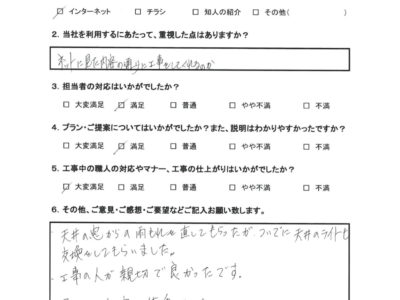 ☑ インターネット □ チラシ □ 知人の紹介 □ その他( )
2. 当社を利用するにあたって、重視した点はありますか?
ネットに見た内容の通りに工事をしてくれるのか
3. 担当者の対応はいかがでしたか?
□ 大変満足 ☑ 満足 □ 普通 □ やや不満 □ 不満
4. プラン・ご提案についてはいかがでしたか?また、説明はわかりやすかったですか?
□ 大変満足 ☑ 満足 □ 普通 □ やや不満 □ 不満
5. 工事中の職人の対応やマナー、工事の仕上がりはいかがでしたか?
☑ 大変満足 □ 満足 □ 普通 □ やや不満 □ 不満
6. その他、ご意見・ご感想・ご要望などご記入お願い致します。
・天井の窓からの雨もれを直してもらったが、ついでに天井のライトも
交換してもらいました。
・工事の人が親切で良かったです。